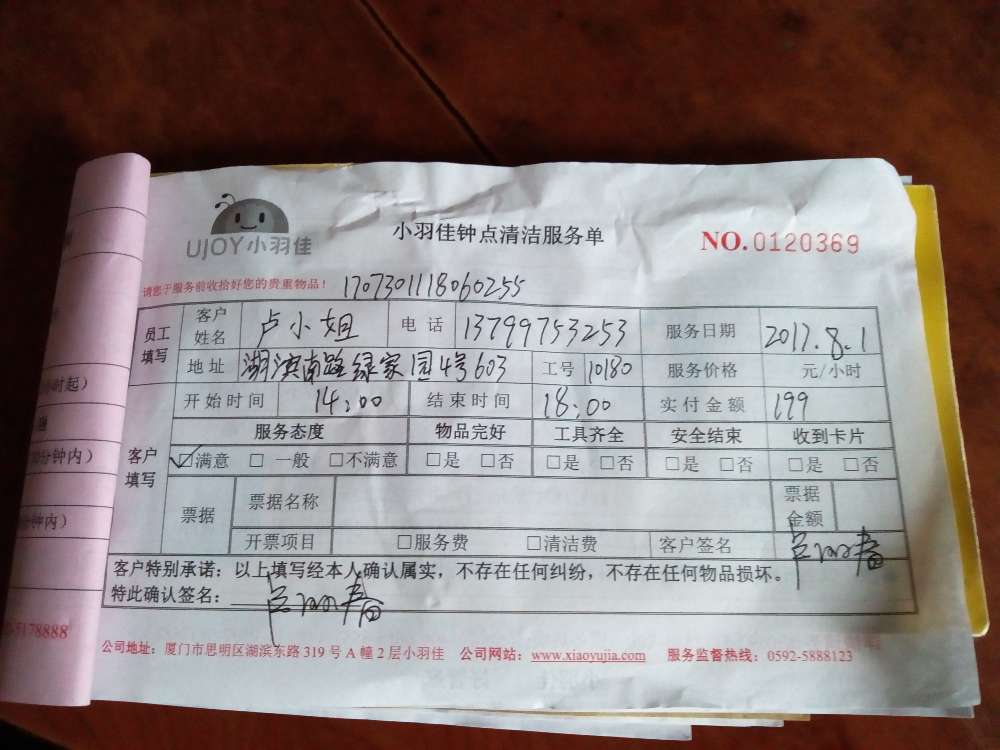 UJOY小羽佳
小羽佳钟点清洁服务单
NO.0120369
请您于服务前收拾好您的贵重物品！ 170730111806025​5
员工填写 客户姓名 卢小姐 电话 13799753253 服务日期 2017.8.1
地址 湖滨南路绿家园4号603 工号 10180 服务价格 元/小时
客户填写 开始时间 14:00 结束时间 18:00 实付金额 199
服务态度 物品完好 工具齐全 安全结束 收到卡片
☑满意 □一般 □不满意 □是 □否 □是 □否 □是 □否 □是 □否
票据 票据名称 票据金额
开票项目 □服务费 □清洁费 客户签名
客户特别承诺：以上填写经本人确认属实，不存在任何纠纷，不存在任何物品损坏。
特此确认签名：
公司地址：厦门市思明区湖滨东路319号A幢2层小羽佳 公司网站：www.xiaoyujia.com 服务监督热线：0592-5888123
小时起）
分钟内）
钟内）
5178888